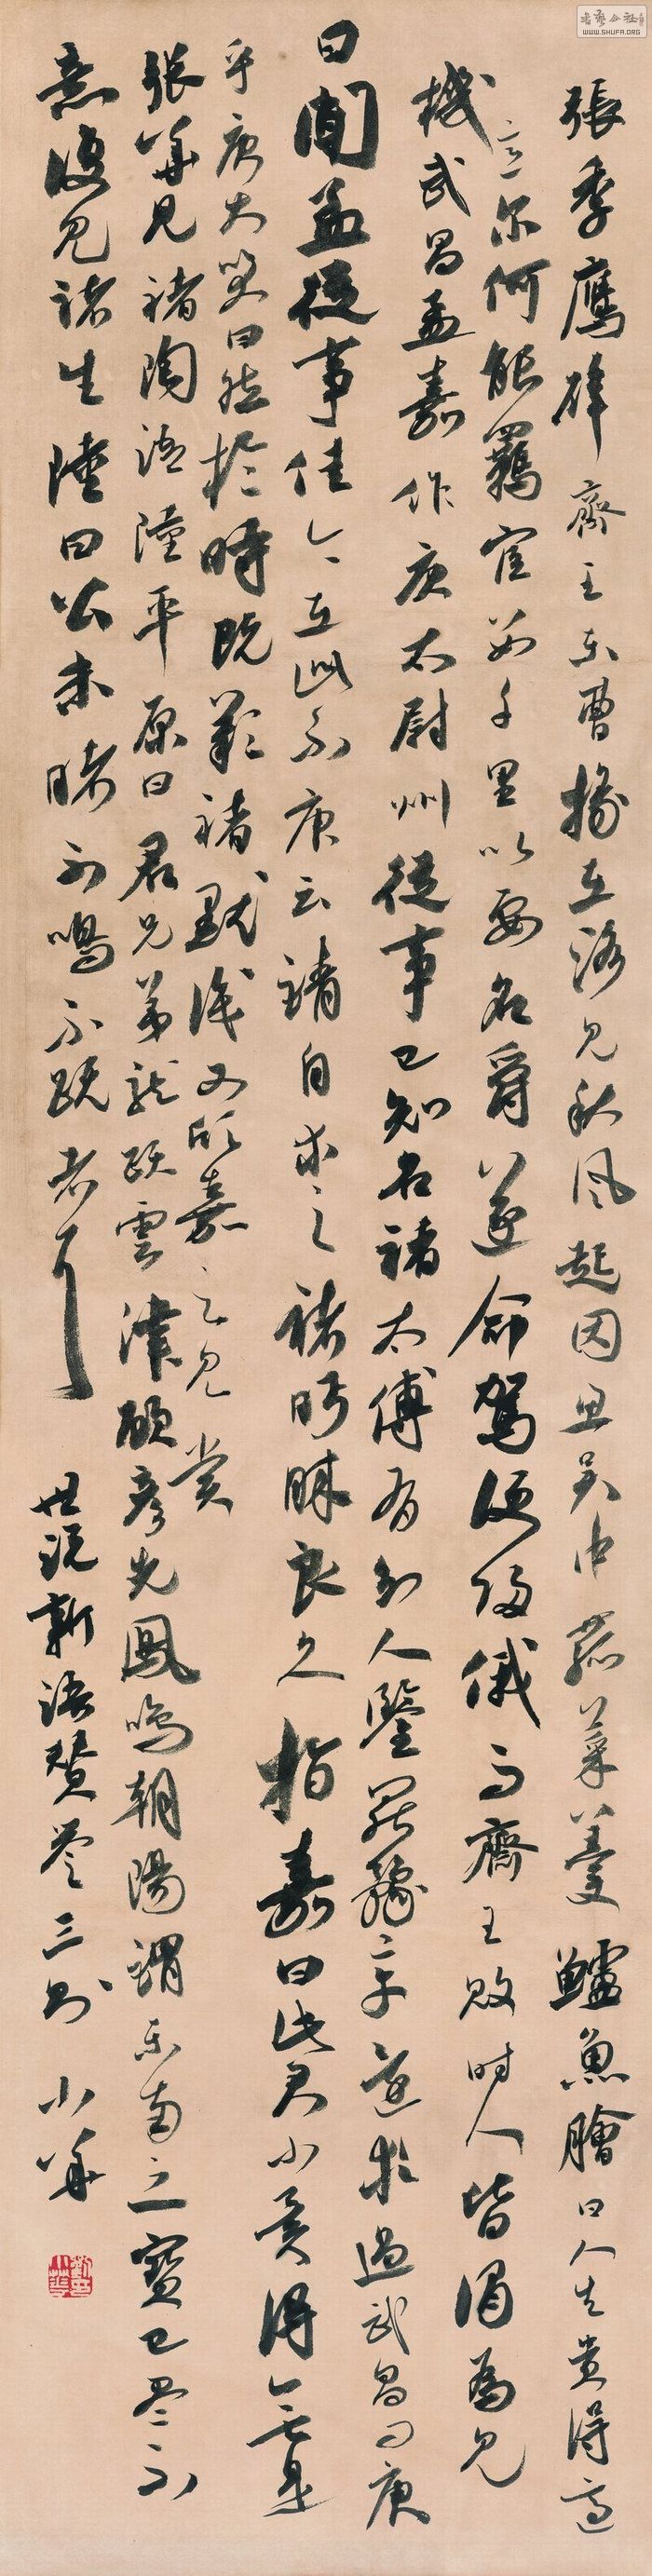 張季鷹辟齊王東曹掾在洛見秋風起因思吳中菰菜羹鱸魚膾曰人生貴得適
意尔何能羈宦數千里以要名爵遂命駕便歸俄而齊王敗時人皆謂為見
機武昌孟嘉作庾太尉州從事已知名褚太傅有知人鑒罷豫章還於過武昌問庾
曰聞孟從事佳今在此不庾云請自求之褚眄睞良久指嘉曰此君小異得無是
乎庾大笑曰然於時既歎褚默識又欣嘉之見賞
張華見褚陶語陸平原曰君兄弟龍躍雲津顧彥先鳳鳴朝陽謂東南之寶已盡不
意復見褚生陸曰公未睹不鳴不躍者耳
世說新語賛誉三則 小華
WWW.SHUFA.ORG